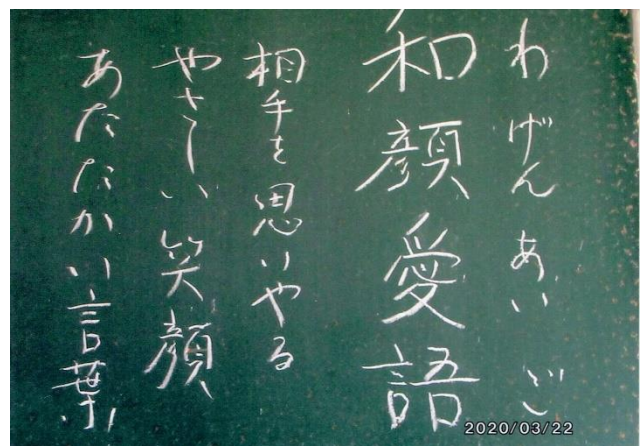 わげんあいご
和顔愛語
相手を思いやる
やさしい笑顔
あたたかい言葉
2020/03/22